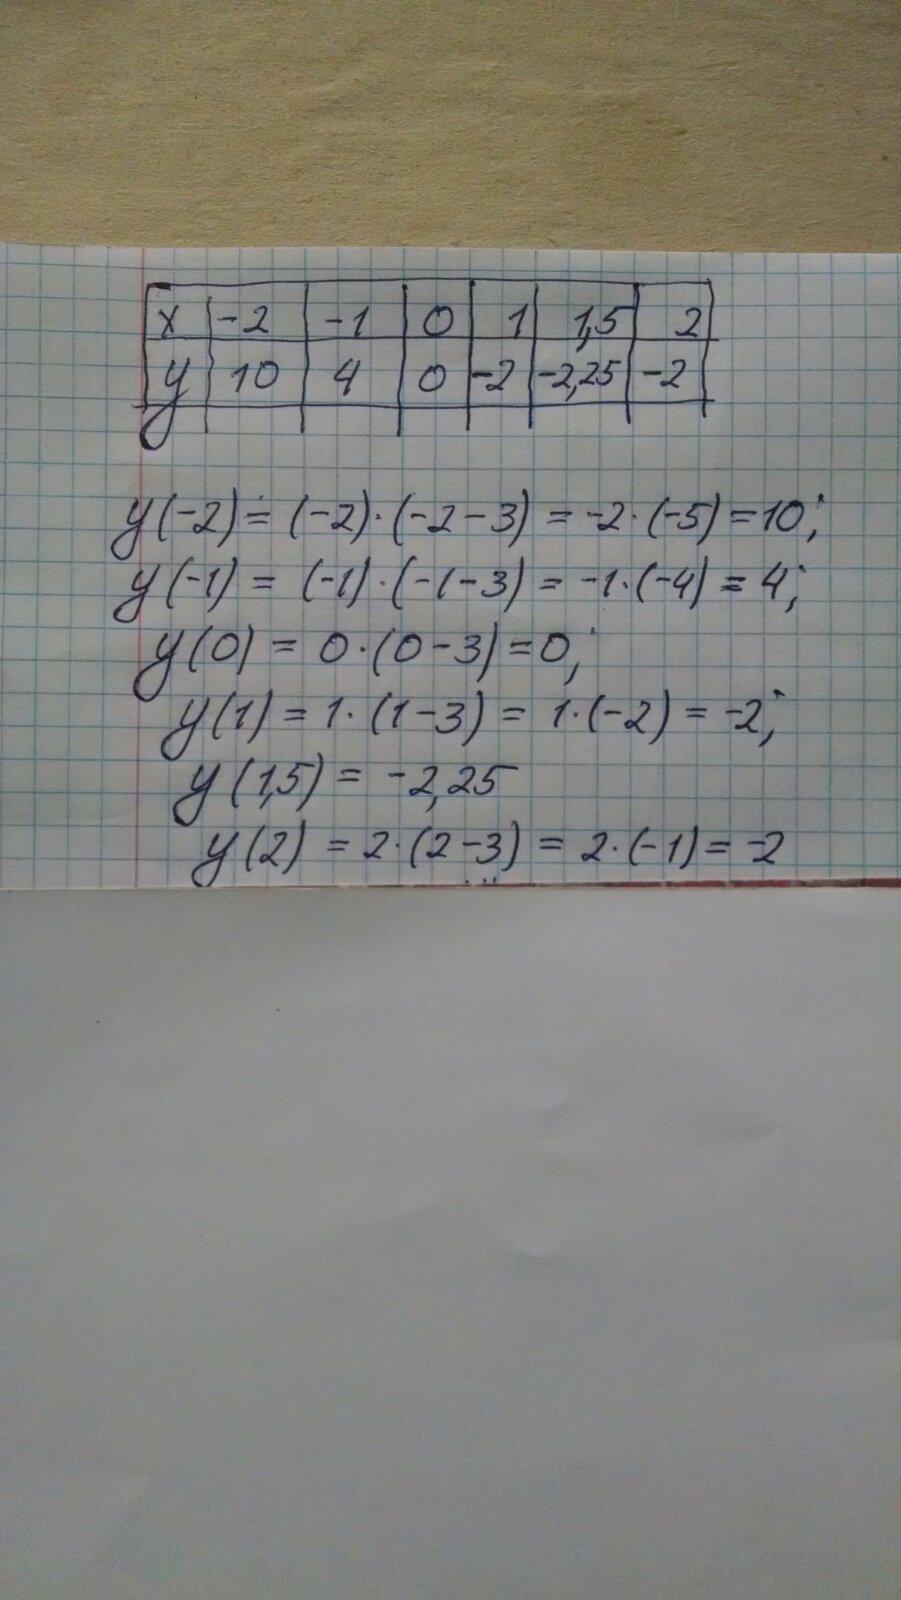 x -2 -1 0 1 1,5 2
y 10 4 0 -2 -2,25 -2
y(-2) = (-2)·(-2-3) = -2·(-5) = 10;
y(-1) = (-1)·(-1-3) = -1·(-4) = 4;
y(0) = 0·(0-3) = 0;
y(1) = 1·(1-3) = 1·(-2) = -2;
y(1,5) = -2,25
y(2) = 2·(2-3) = 2·(-1) = -2